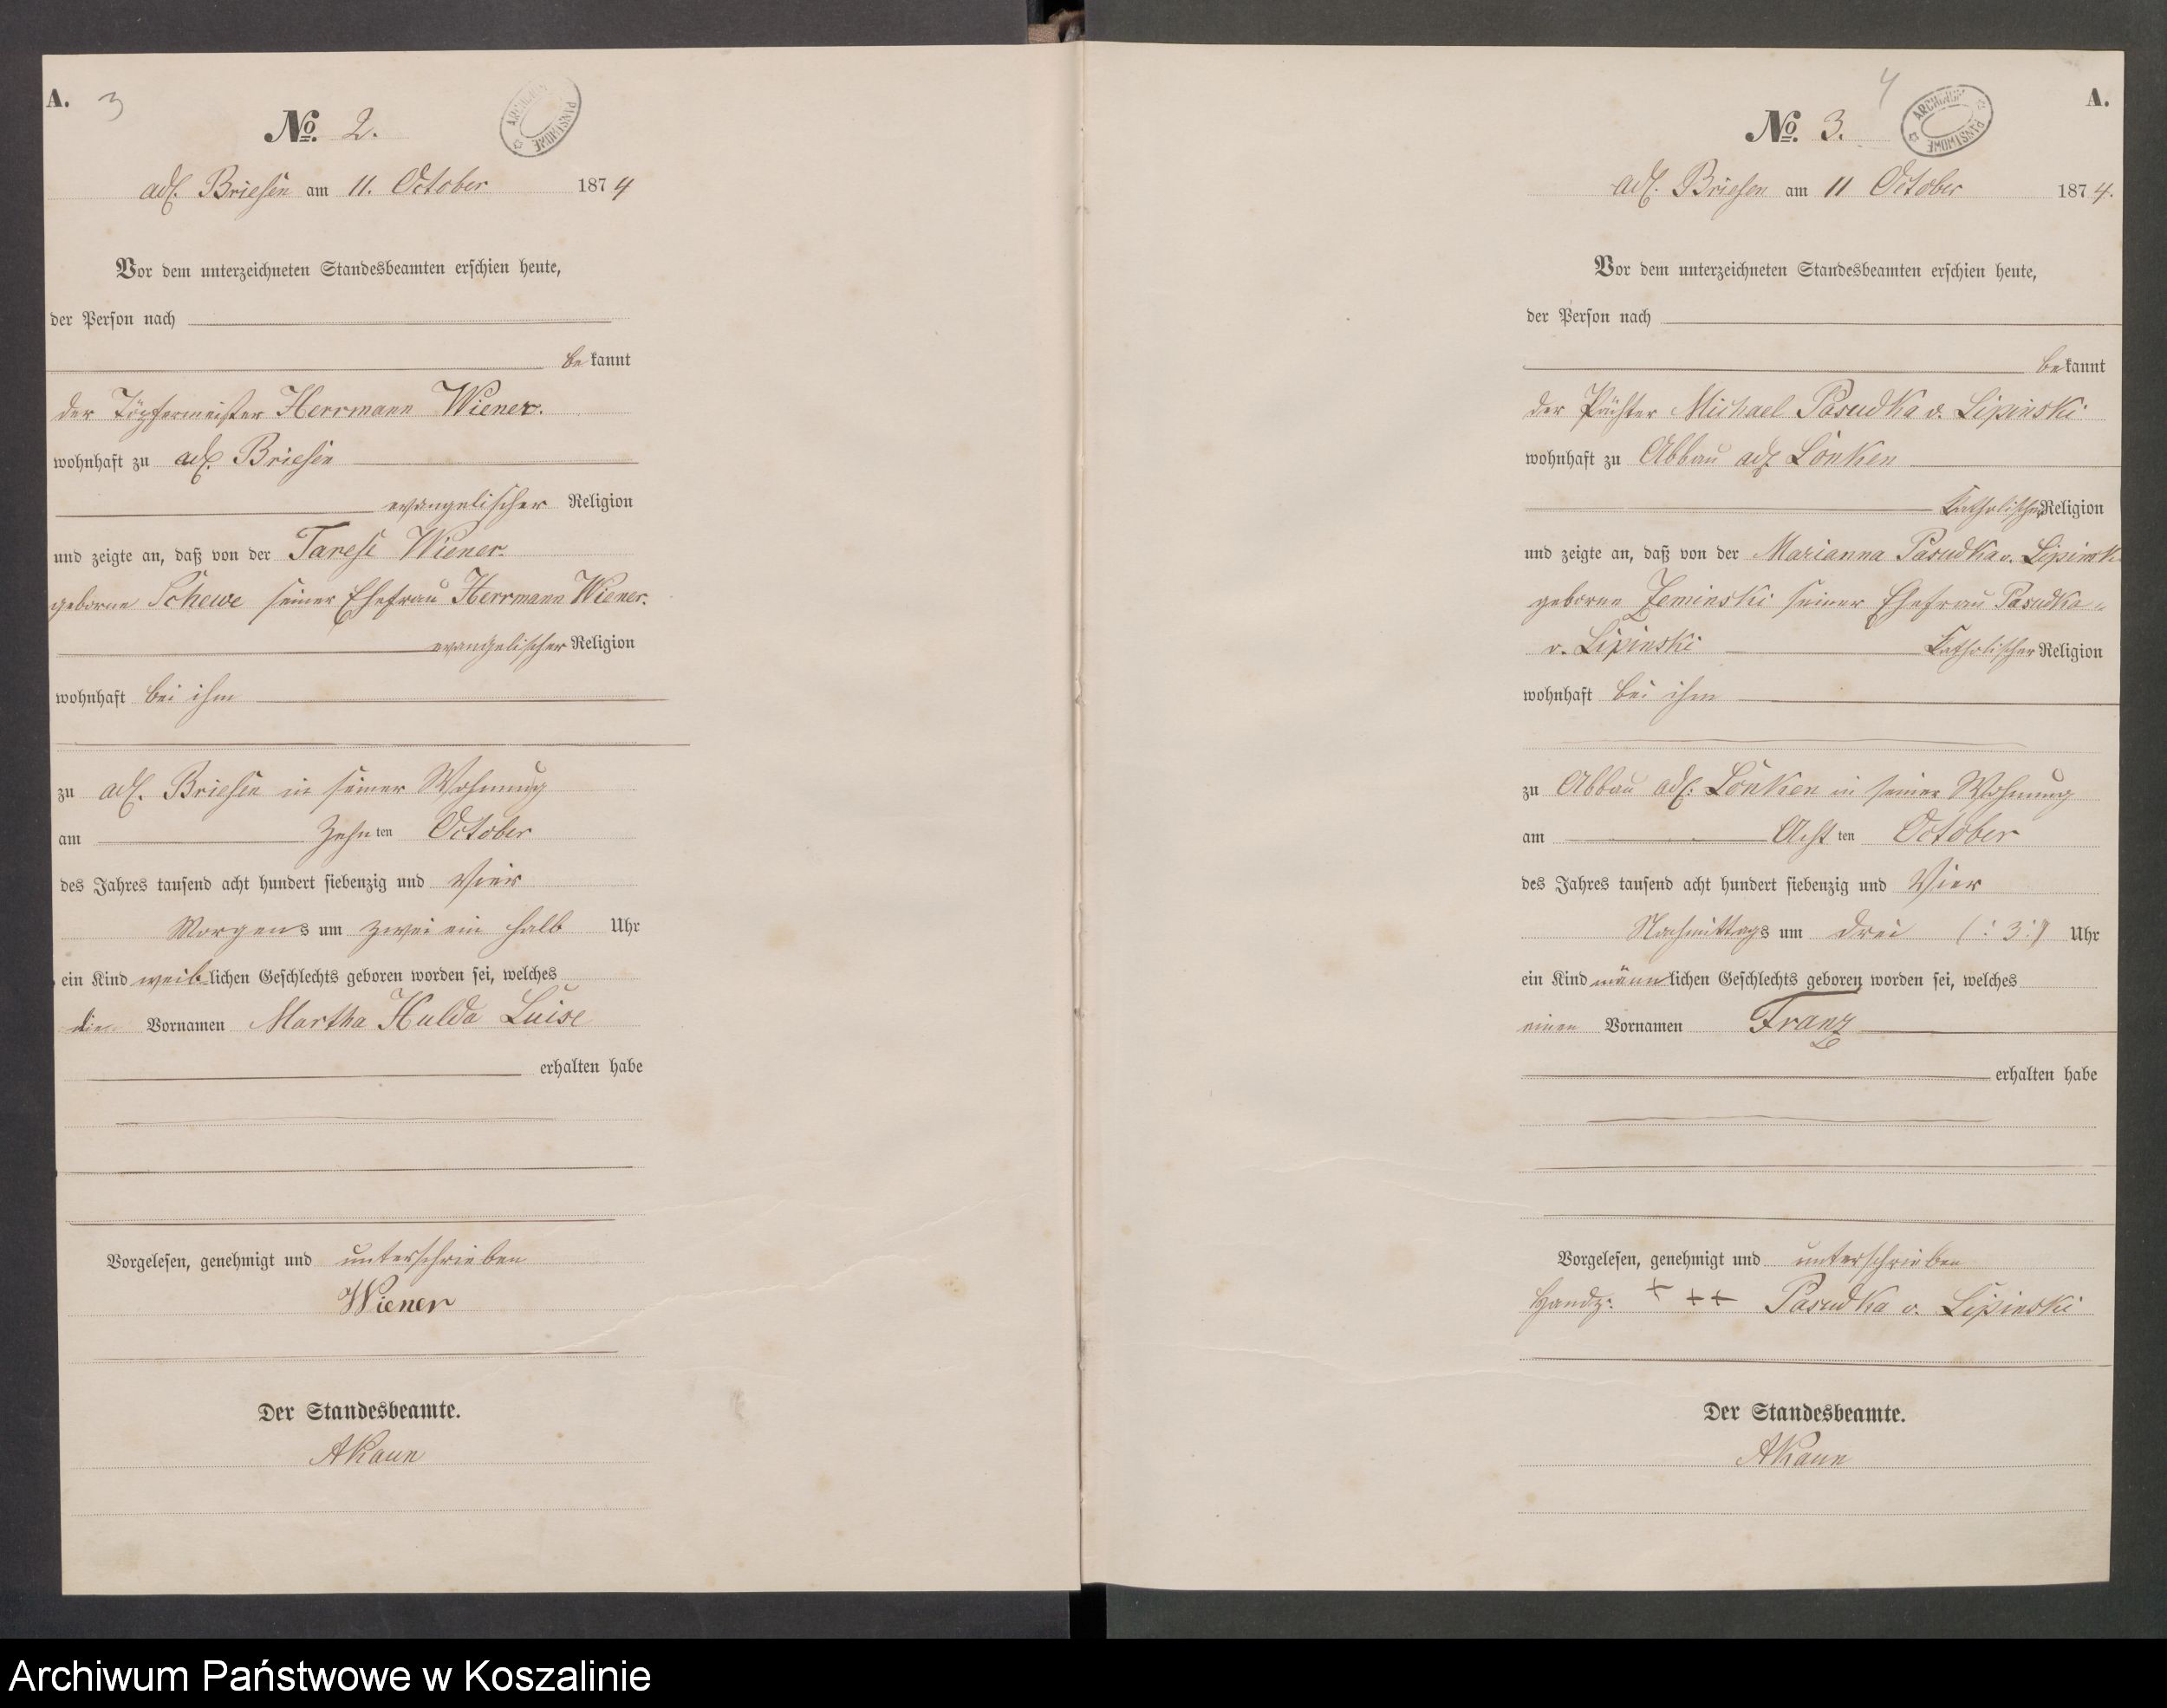 A. 3
ARCHIWUM PAŃSTWOWE
No. 2.
adl. Briesen am 11. October 1874
Vor dem unterzeichneten Standesbeamten erschien heute,
der Person nach
bekannt
der Töpfermeister Herrmann Wiener.
wohnhaft zu adl. Briesen
evangelischer Religion
und zeigte an, daß von der Tarese Wiener.
geborne Schewe seiner Ehefrau Herrmann Wiener.
evangelischer Religion
wohnhaft bei ihm
zu adl. Briesen in seiner Wohnung
am Zehnten October
des Jahres tausend acht hundert siebenzig und Vier
Morgens um zwei ein halb Uhr
ein Kind weiblichen Geschlechts geboren worden sei, welches
die Vornamen Martha Hulda Luise
erhalten habe
Vorgelesen, genehmigt und unterschrieben
Wiener
Der Standesbeamte.
AKaun
4 A.
ARCHIWUM PAŃSTWOWE
No. 3.
adl. Briesen am 11 October 1874.
Vor dem unterzeichneten Standesbeamten erschien heute,
der Person nach
bekannt
der Pächter Michael Pasudka v. Lipinski
wohnhaft zu Abbau adl. Lonken
Katholischer Religion
und zeigte an, daß von der Marianna Pasudka v. Lipinsk
geborne Zeminski seiner Ehefrau Pasudka-
v. Lipinski Katholischer Religion
wohnhaft bei ihm
zu Abbau adl. Lonken in seiner Wohnung
am Achten October
des Jahres tausend acht hundert siebenzig und Vier
Nachmittags um drei (: 3 :) Uhr
ein Kind männlichen Geschlechts geboren worden sei, welches
einen Vornamen Franz
erhalten habe
Vorgelesen, genehmigt und unterschrieben
Handz: + ++ Pasudka v. Lipinski
Der Standesbeamte.
AKaun
Archiwum Państwowe w Koszalinie